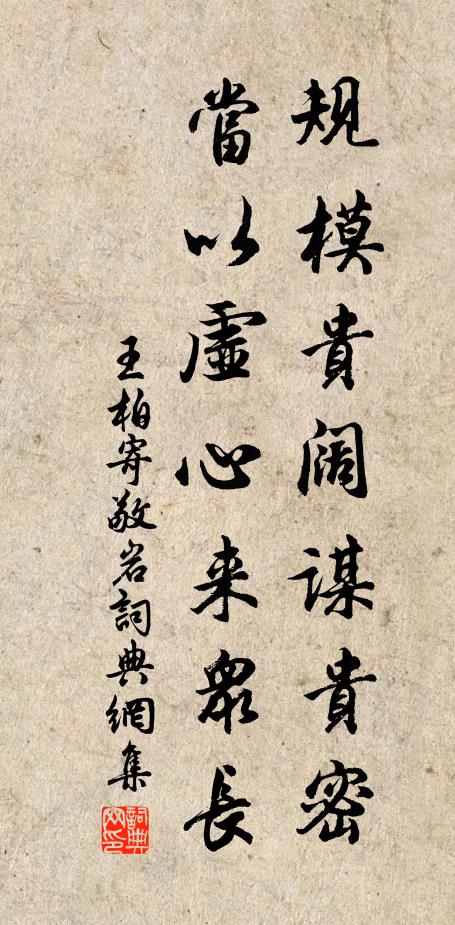 規模貴阔謀貴密
當以虛心来衆長
王柏寄敬岩詞典網集
詞典網印